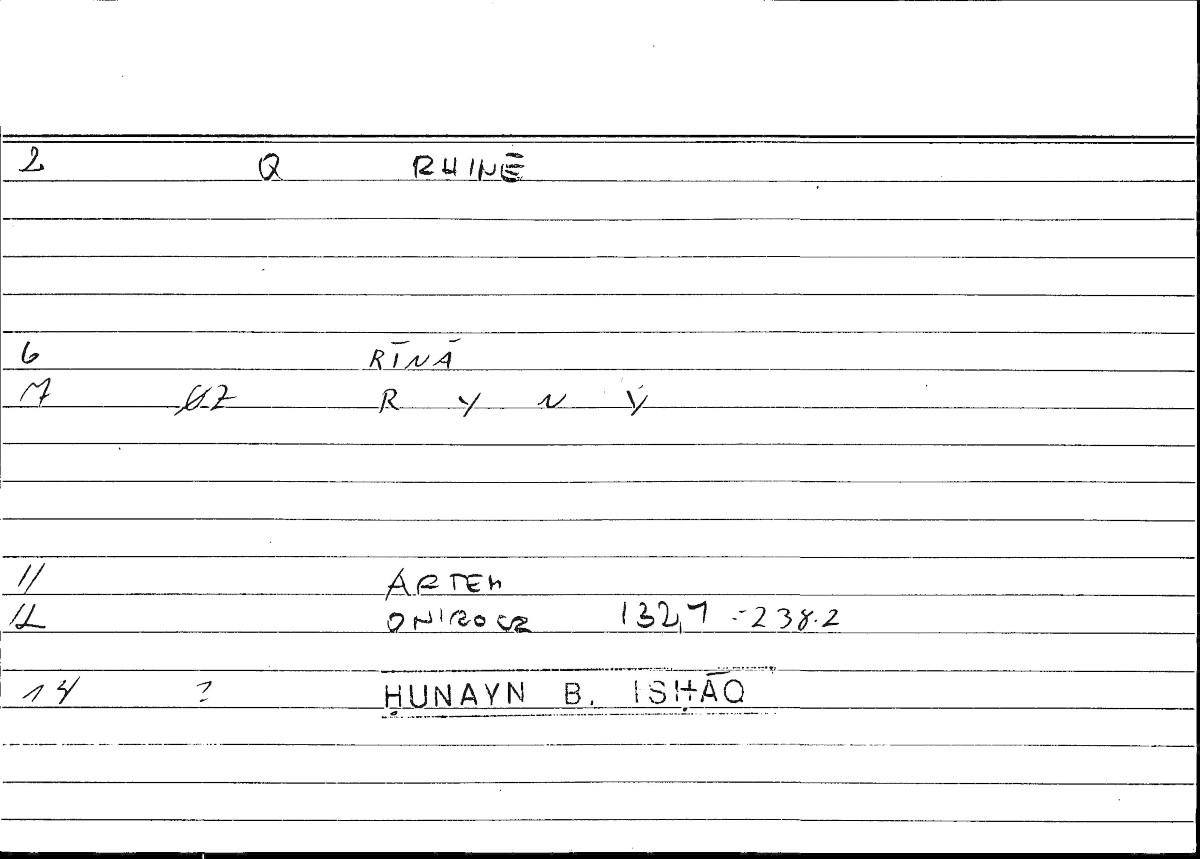 2 Q RHINĒ
6 RĪNĀ
7 02 R Y N Ẏ
11 ARTEM
12 ONIROCR 132,7 = 238.2
14 ? ḤUNAYN B. ISḤĀQ